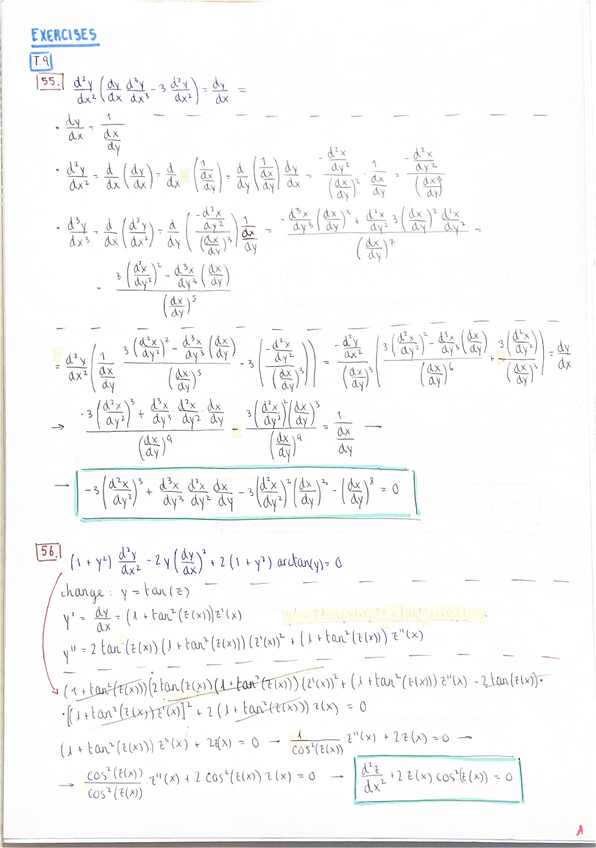 EXERCISES
T.9
55. d²y/dx² (dy/dx d³y/dx³ - 3 d²y/dx²) = dy/dx =
· dy/dx = 1/(dx/dy)
· d²y/dx² = d/dx (dy/dx) = d/dx (1/(dx/dy)) = d/dy (1/(dx/dy)) dy/dx = (-d²x/dy²)/(dx/dy)² · 1/(dx/dy) = (-d²x/dy²)/(dx/dy)³
· d³y/dx³ = d/dx (d²y/dx²) = d/dy ((-d²x/dy²)/(dx/dy)³) 1/(dx/dy) = (-d³x/dy³ (dx/dy)³ + d²x/dy² 3 (dx/dy)² d²x/dy²)/(dx/dy)⁷ =
= (3 (d²x/dy²)² - d³x/dy³ (dx/dy))/(dx/dy)⁵
= d²y/dx² (1/(dx/dy) (3 (d²x/dy²)² - d³x/dy³ (dx/dy))/(dx/dy)⁵ - 3 ((-d²x/dy²)/(dx/dy)³)) = (-d²y/dx²)/(dx/dy)³ ((3 (d²x/dy²)² - d³x/dy³ (dx/dy))/(dx/dy)⁶ + 3 (d²x/dy²)/(dx/dy)³) = dy/dx
→ (-3 (d²x/dy²)³ + d³x/dy³ d²x/dy² · dx/dy)/(dx/dy)⁹ - (3 (d²x/dy²)² (dx/dy)³)/(dx/dy)⁹ = 1/(dx/dy) —
— -3 (d²x/dy²)³ + d³x/dy³ d²x/dy² dx/dy - 3 (d²x/dy²)² (dx/dy)³ - (dx/dy)⁸ = 0
56. (1 + y²) d²y/dx² - 2y (dy/dx)² + 2 (1 + y²) arctan(y) = 0
change: y = tan(z)
y' = dy/dx = (1 + tan²(z(x))) z'(x)
y'' = 2 tan(z(x)) (1 + tan²(z(x))) (z'(x))² + (1 + tan²(z(x))) z''(x)
(1 + tan²(z(x))) (2 tan(z(x)) (1 + tan²(z(x))) (z'(x))² + (1 + tan²(z(x))) z''(x) - 2 tan(z(x)) ·
· [(1 + tan²(z(x)) z'(x)]² + 2 (1 + tan²(z(x))) z(x) = 0
(1 + tan²(z(x))) z''(x) + 2z(x) = 0 → 1/cos²(z(x)) z''(x) + 2 z(x) = 0 →
→ cos²(z(x))/cos²(z(x)) z''(x) + 2 cos²(z(x)) z(x) = 0 → d²z/dx² + 2 z(x) cos²(z(x)) = 0
1